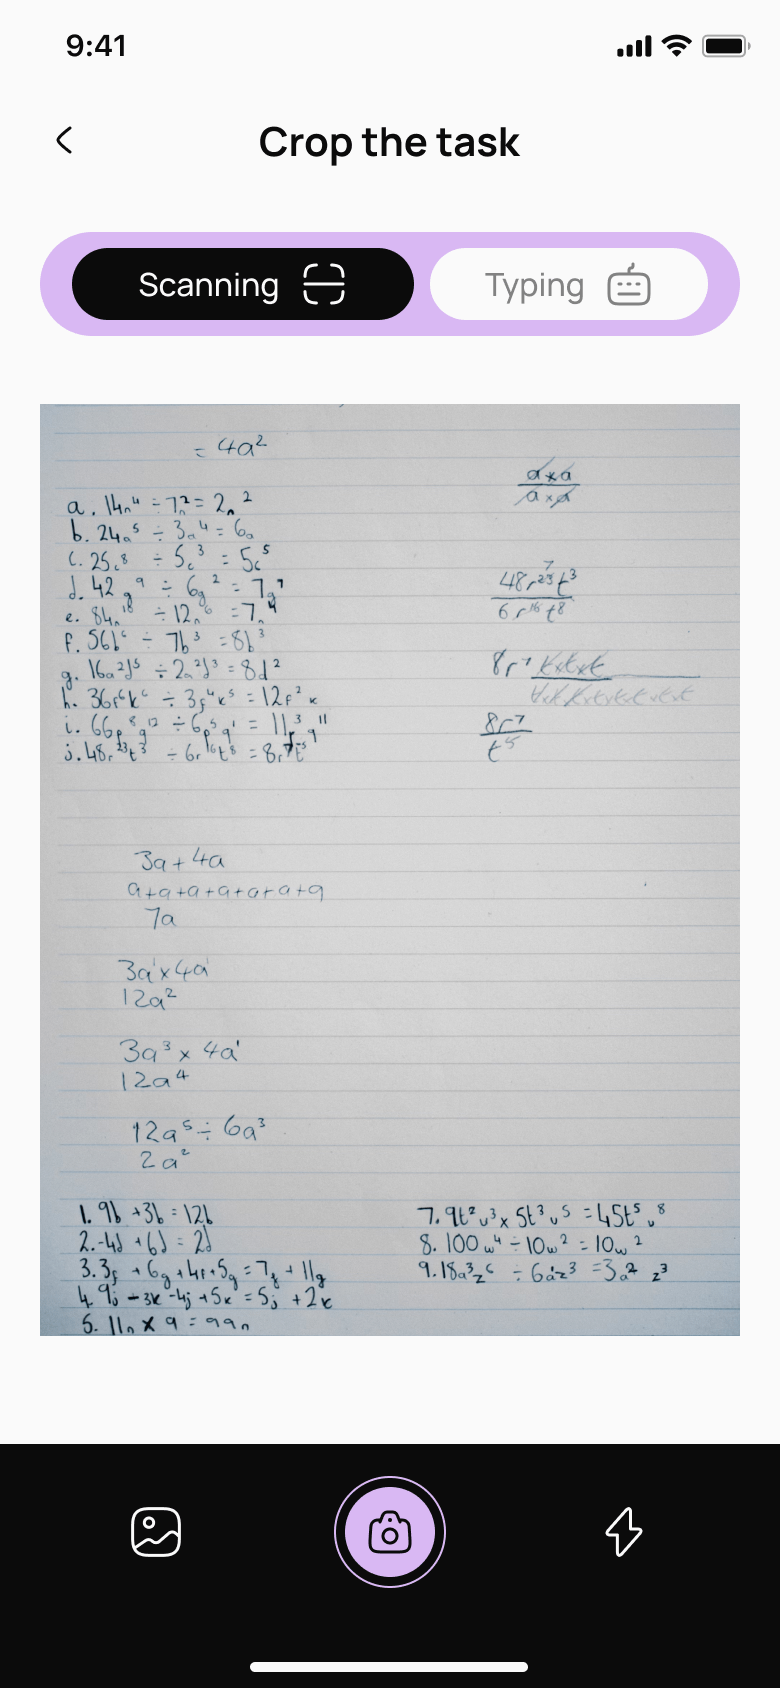 9:41
Crop the task
Scanning
Typing
= 4a²
a×a
a×a
a. 14n⁴ ÷ 7n² = 2n²
b. 24a⁵ ÷ 3a⁴ = 6a
c. 25c⁸ ÷ 5c³ = 5c⁵
d. 42g⁹ ÷ 6g² = 7g⁷
e. 84n¹⁸ ÷ 12n⁶ = 7n
f. 56b⁶ ÷ 7b³ = 8b³
g. 16a²d⁵ ÷ 2a²d³ = 8d²
h. 36f⁶k⁶ ÷ 3f⁴k⁵ = 12f²k
i. 66p⁸q¹² ÷ 6p⁵q¹ = 11p³q¹¹
j. 48r²³t³ ÷ 6r¹⁶t⁸ = 8r⁷t⁻⁵
7
48r²³t³
6r¹⁶t⁸
8r⁷ t×t×t
t×t×t×t×t×t×t×t
8r⁷
t⁵
3a + 4a
a+a+a+a+a+a+a
7a
3a¹ × 4a¹
12a²
3a³ × 4a¹
12a⁴
12a⁵ ÷ 6a³
2a²
1. 9b + 3b = 12b
2. -4d + 6d = 2d
3. 3f + 6g + 4f + 5g = 7f + 11g
4. 9j - 3k - 4j + 5k = 5j + 2k
5. 11n × 9 = 99n
7. 9t²u³ × 5t³u⁵ = 45t⁵u⁸
8. 100w⁴ ÷ 10w² = 10w²
9. 18a³z⁶ ÷ 6a¹z³ = 3a²z³